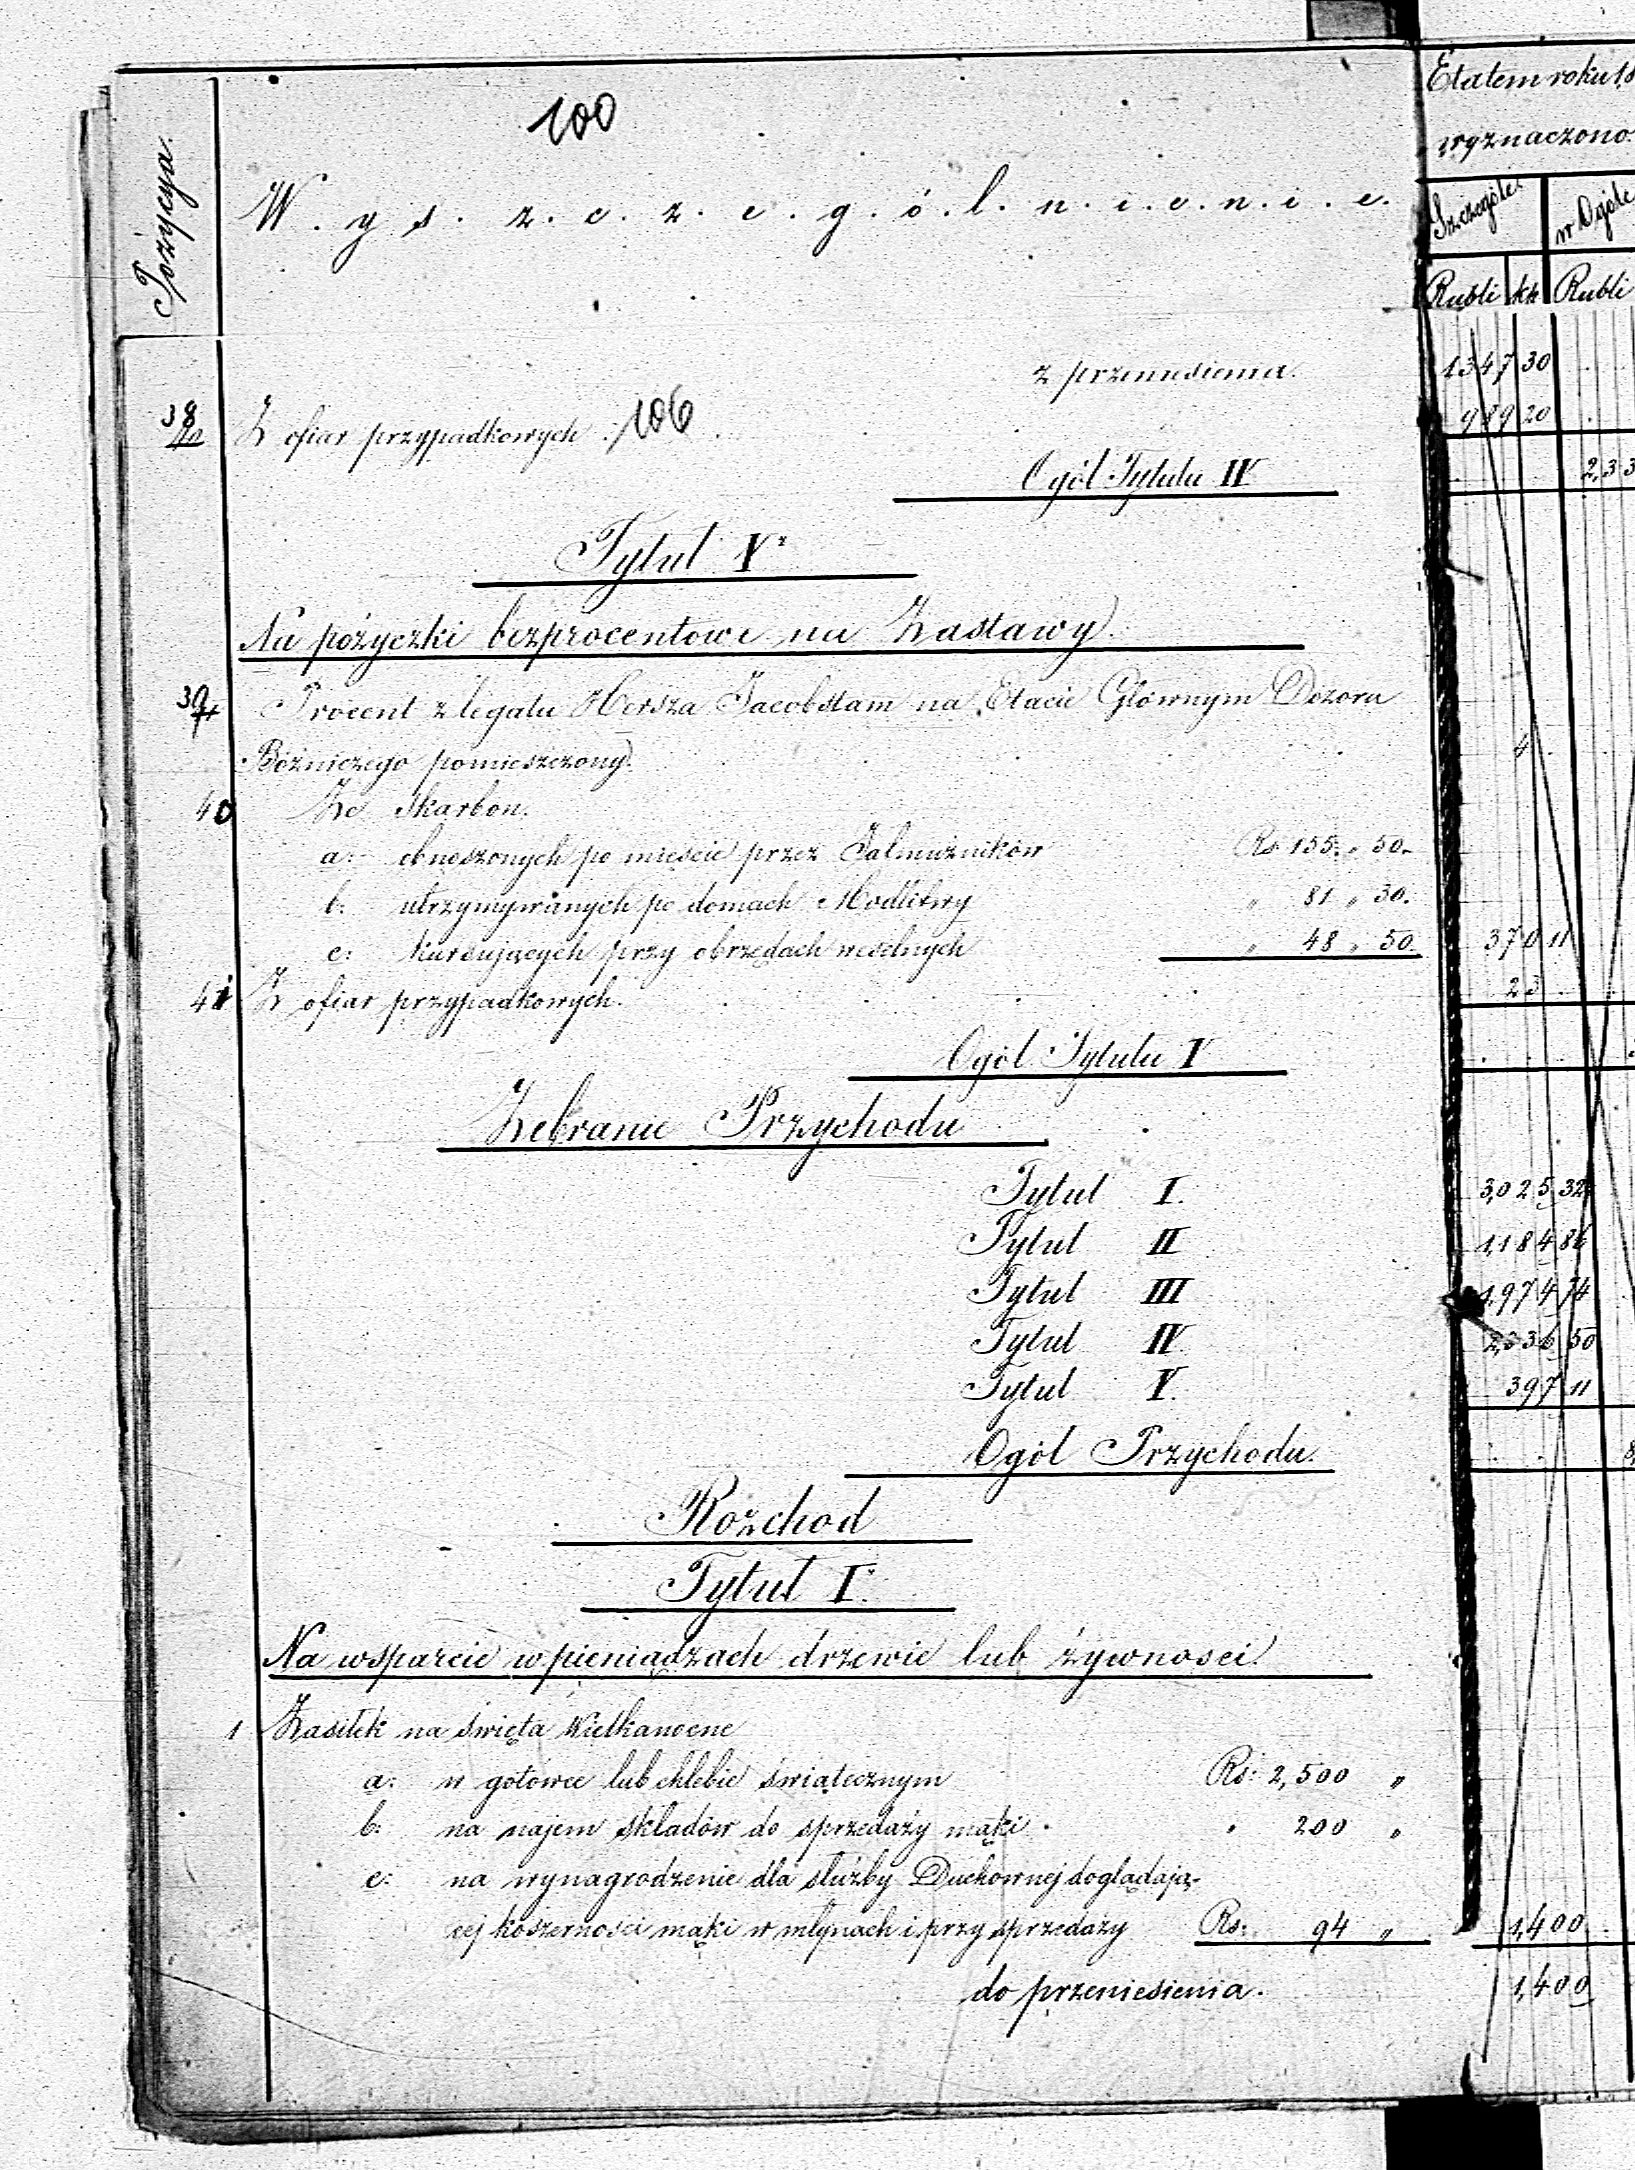 Etatem roku 18
100
wyznaczono.
Pozycya.
W.y.s.z.c.z.e.g.ó.l.n.i.e.n.i.e.
Szczególe w Ogóle
Rubli kk Rubli
z przeniesienia. 1347 30
38 Z ofiar przypadkowych 106 989 20
Ogół Tytułu IV 2,33
Tytuł V
Na pożyczki bezprocentowe na Zastawy.
39 Procent z legatu Hersza Jacobstam na Etacie Głównym Dozoru
Bóżniczego pomieszczony. 4
40 Ze Skarbon.
a: obnoszonych po mieście przez Jałmużników Rs 155 „ 50.
b: utrzymywanych po domach Modlitwy „ 81 „ 30.
c: kursujących przy obrzędach weselnych „ 48 „ 50. 370 11
41 Z ofiar przypadkowych. 23
Ogół Tytułu V
Zebranie Przychodu
Tytuł I. 3,025 32
Tytuł II 1,184 86
Tytuł III 1,974 74
Tytuł IV 2,336 50
Tytuł V. 397 11
Ogół Przychodu. 8,
Rozchod
Tytuł I.
Na wsparcie w pieniądzach drzewie lub żywnosci
1 Zasiłek na święta Wielkanocne
a: w gotowce lub chlebie świątecznym Rs: 2,500 „
b: na najem składów do sprzedaży mąki „ 200 „
c: na wynagrodzenie dla służby Duchownej doglądają-
cej koszerności mąki w młynach i przy sprzedaży Rs: 94 „ 1,400
do przeniesienia. 1,400